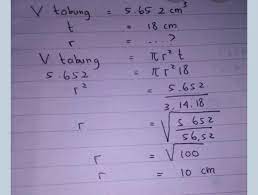 V tabung = 5.652 cm³
t = 18 cm
r = ...?
V tabung = πr² t
5.652 = πr² 18
r² = 5.652 / 3,14.18
r = √5.652 / 56,52
r = √100
r = 10 cm